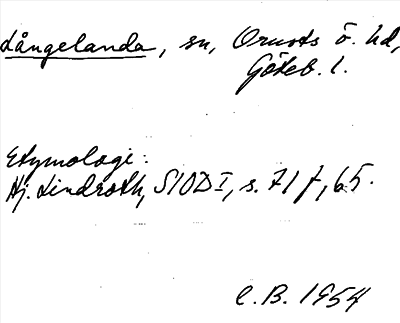 Långelanda, sn, Orusts ö. hd,
Göteb. l.
Etymologi:
Hj. Lindroth, SIOD I, s. 71 f, 65.
C.B. 1954